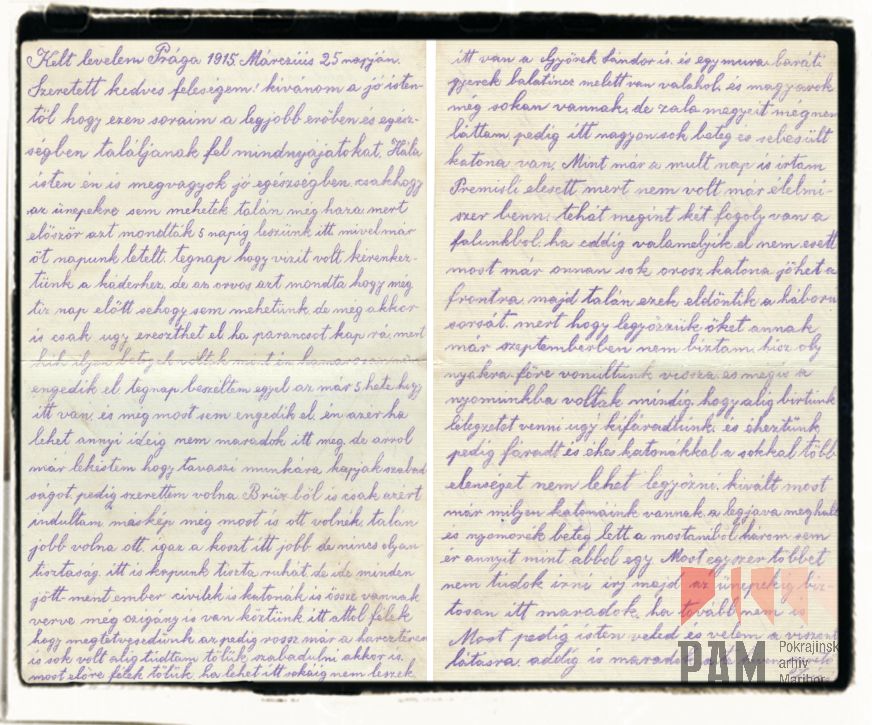 Kelt levelem Prága 1915. Márczius 25 napján.
Szeretett kedves feleségem! kívánom a jó isten-
től hogy ezen soraim a legjobb erőben és egész-
ségben találjanak fel mindnyájatokat, Hála
isten én is megvagyok jó egészségben csakhogy
az ünepekre sem mehetek talán még haza mert
először azt mondták 5 napig leszünk itt mivel már
öt napunk letelt. tegnap hogy vizit volt kérenkez-
tünk a káderhez, de az orvos azt mondta hogy még
tiz nap előtt sehogy sem mehetünk de még akkor
is csak ugy ereszthet el ha parancsot kap rá, mert
kik ilyen betegek voltak mint én hamarosan
engedik el tegnap beszéltem egyel az már 5 hete hogy
itt van, és még most sem engedik el én azér ha
lehet annyi ideig nem maradok itt meg, de arrol
már lekéstem hogy tavaszi munkára kapják szabad-
ságot, pedig szerettem volna Brüx ből is csak azért
indultam, máskép még most is ott volnék, talán
jobb volna ott, igaz a koszt itt jobb de nincs olyan
tisztaság, itt is kapunk tiszta ruhát de ide minden
jött-ment ember civilek is katonák is össze vannak
verve még ozigány is van köztünk itt attol félek
hogy megtetvesedünk az pedig rossz már a harcztéren
is sok volt alig tudtam tőlük szabadulni akkor is
most előre félek tőlük, ha lehet itt sokáig nem leszek
itt van a Györek Sándor is, és egy mura baráti
gyerek balatincz melett van valahol, és magyarok
még sokan vannak, de zala megyeit még nem
láttam, pedig itt nagyon sok beteg és sebesült
katona van, Mint már a mult nap is írtam
Premisli elesett mert nem volt már élelmi-
szer benn, tehát megint két fogoly van a
falunkbol, ha eddig valamelyik el nem esett
most már onnan sok orosz katona jöhet a
frontra, majd talán ezek eldöntik a háboru
sorsát, mert hogy legyőzzük őket annak
már szeptemberben nem biztam, hisz oly
nyakra főre vonultunk vissza, és mégis a
nyomunkba voltak mindig, hogy alig birtunk
lélegzetot venni ugy kifáradtunk, és éheztünk
pedig fáradt és éhes katonákkal a sokkal több
elenséget nem lehet legyőzni, kivált most
már milyen katonáink vannak a legjava meghalt
és nyomorék beteg lett a mostaniból három sem
ér annyit mint abbol egy. Most egyszer többet
nem tudok irni irj majd az ünepekig biz-
tosan itt maradok, ha tovább nem is
Most pedig isten veled és velem a viszont
látásra addig is maradok
PAM
Pokrajinski
arhiv
Maribor